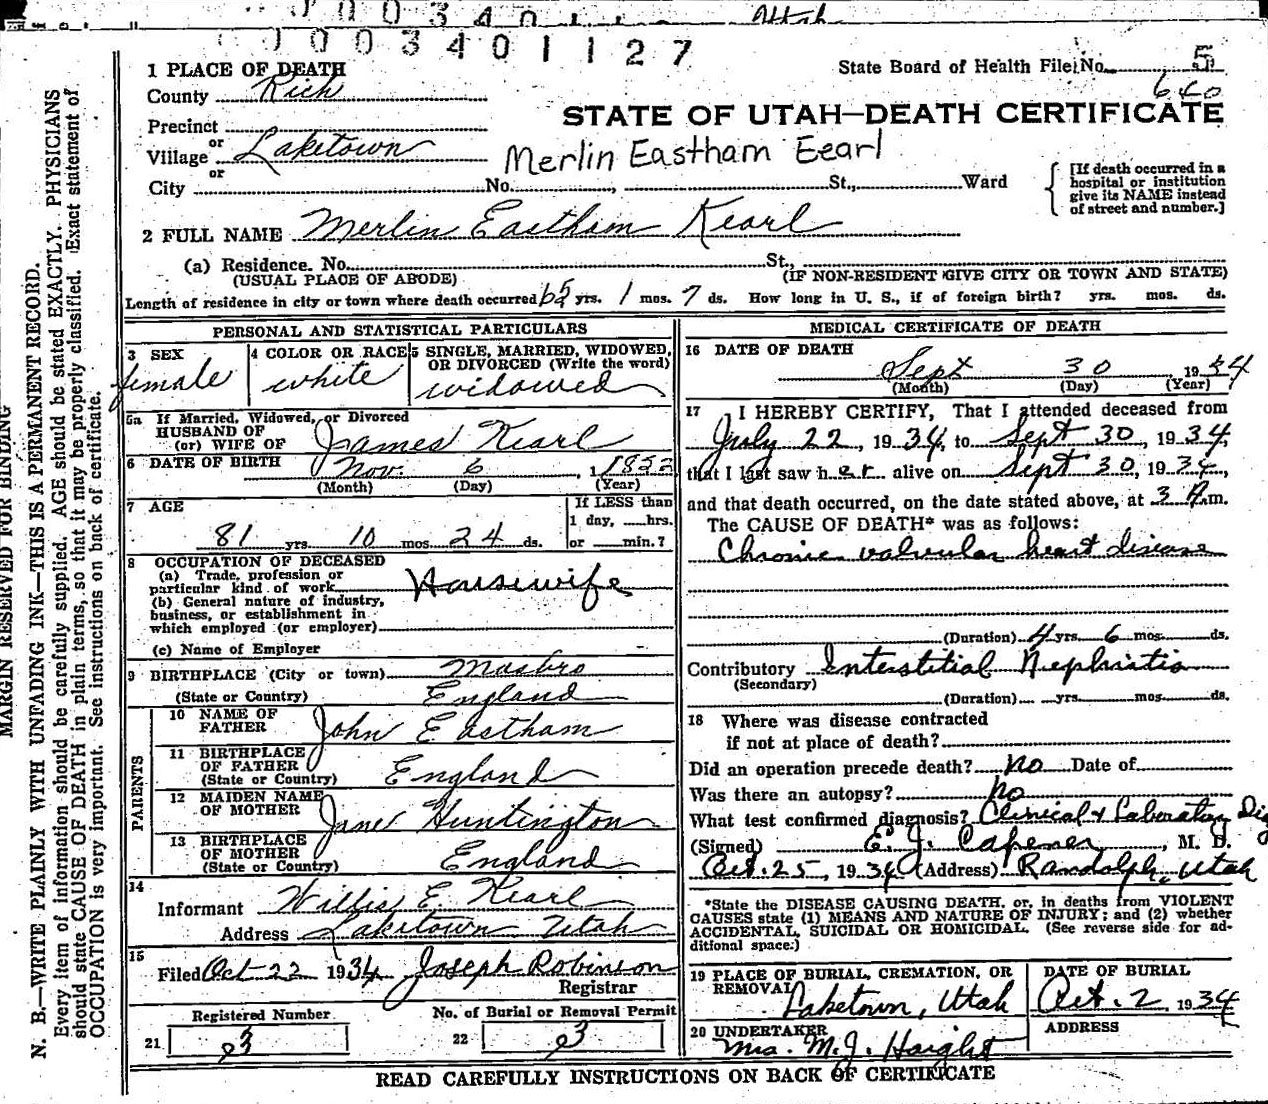 Utah
1003401127
1 PLACE OF DEATH
State Board of Health File No. 5
640
County Rich
STATE OF UTAH—DEATH CERTIFICATE
Precinct
or
Village Laketown
Merlin Eastham Eearl
or
City No. , St., Ward
[If death occurred in a
hospital or institution
give its NAME instead
of street and number.]
2 FULL NAME Merlin Eastham Kearl
(a) Residence. No. St.,
(USUAL PLACE OF ABODE) (IF NON-RESIDENT GIVE CITY OR TOWN AND STATE)
Length of residence in city or town where death occurred 65 yrs. 1 mos. 7 ds. How long in U. S., if of foreign birth? yrs. mos. ds.
PERSONAL AND STATISTICAL PARTICULARS
3 SEX
female
4 COLOR OR RACE
white
5 SINGLE, MARRIED, WIDOWED,
OR DIVORCED (Write the word)
widowed
5a If Married, Widowed, or Divorced
HUSBAND OF
(or) WIFE OF James Kearl
6 DATE OF BIRTH Nov. 6, 1 1852
(Month) (Day) (Year)
7 AGE
81 yrs. 10 mos. 24 ds.
If LESS than
1 day, hrs.
or min.?
8 OCCUPATION OF DECEASED
(a) Trade, profession or
particular kind of work Housewife
(b) General nature of industry,
business, or establishment in
which employed (or employer)
(c) Name of Employer
9 BIRTHPLACE (City or town) Masbro
(State or Country) England
PARENTS
10 NAME OF
FATHER John Eastham
11 BIRTHPLACE
OF FATHER
(State or Country) England
12 MAIDEN NAME
OF MOTHER Jane Huntington
13 BIRTHPLACE
OF MOTHER
(State or Country) England
14
Informant Willis E. Kearl
Address Laketown Utah
15
Filed Oct 22 1934 Joseph Robinson
Registrar
Registered Number
21 3
No. of Burial or Removal Permit
22 3
MEDICAL CERTIFICATE OF DEATH
16 DATE OF DEATH
Sept 30, 1934
(Month) (Day) (Year)
17 I HEREBY CERTIFY, That I attended deceased from
July 22, 1934, to Sept 30, 1934,
that I last saw her alive on Sept 30, 1934,
and that death occurred, on the date stated above, at 3 A.m.
The CAUSE OF DEATH* was as follows:
Chronic valvular heart disease
(Duration) 4 yrs. 6 mos. ds.
Contributory Interstitial Nephritis
(Secondary)
(Duration) yrs. mos. ds.
18 Where was disease contracted
if not at place of death?
Did an operation precede death? no Date of
Was there an autopsy? no
What test confirmed diagnosis? Clinical & Laboratory Dig
(Signed) E. J. Capener, M. D.
Oct. 25, 1934 (Address) Randolph, Utah
*State the DISEASE CAUSING DEATH, or, in deaths from VIOLENT
CAUSES state (1) MEANS AND NATURE OF INJURY; and (2) whether
ACCIDENTAL, SUICIDAL OR HOMICIDAL. (See reverse side for ad-
ditional space.)
19 PLACE OF BURIAL, CREMATION, OR
REMOVAL Laketown, Utah
DATE OF BURIAL
Oct. 2, 1934
20 UNDERTAKER
Mrs. M. J. Haight
ADDRESS
READ CAREFULLY INSTRUCTIONS ON BACK OF CERTIFICATE
MARGIN RESERVED FOR BINDING
N. B.—WRITE PLAINLY WITH UNFADING INK—THIS IS A PERMANENT RECORD.
Every item of information should be carefully supplied. AGE should be stated EXACTLY. PHYSICIANS
should state CAUSE OF DEATH in plain terms, so that it may be properly classified. Exact statement of
OCCUPATION is very important. See instructions on back of certificate.